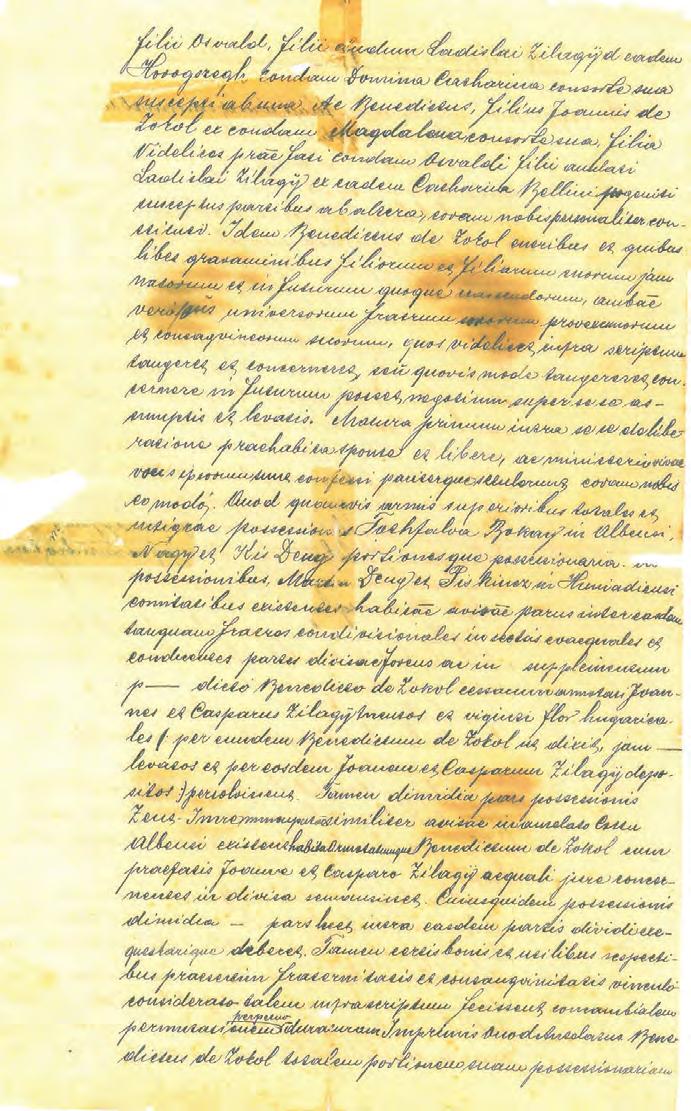 filii Osvald, filii andum Ladislai Zilagÿ d eadem
Horogszegh condam Domina Catharina consorte sua
suscepti ab una. Ac Benedictus, filius Joannis de
Zokol ex condam Magdalena consorte sua, filia
Videlicet praefati condam Osvaldi filii annlati
Ladislai Zilagÿ ex eadem Catharina Bellini progeniti
susceptus partibus ab altera, coram nobis personaliter con-
stituti. Idem Benedictus de Zokol oneribus et quibus
libet gravaminibus filiorum et filiarum suorum jam
natorum et in futurum quoque nascendorum, ambae
vero partes, universorum fratrum suorum proximorum
et consagvineorum suorum, quos videlicet infra scriptum
tangeret et concerneret, seu quovis mode tangeret et con-
cernere in futurum posset, negotium super se se as-
sumptis et levatis. Matura primum intra se se delibe
ratione praehabita sponte et libere, ac ministerio vivae
vocis eorum sunt confessi pariterque retulerunt coram nobis
eo modo. Quod quamvis armis superioribus totales et
integrae possessiones Foehfalva Bokay in Albensi,
Nagy et Kis Deng portionesque possessionaria in
possessionibus, Martin Deng et Piskincz in Huniadiensi
comitatibus existentes habitae avitae partis inter easdem
tanquam fratres condivisionales in rectas coaequales et
conducentes partes divisae forent ac in supplementum
p— dicto Benedicto de Zokol cessarum annotati Joan-
nes et Casparus Zilagÿ tmentos et viginti flor hugarica-
les (per eundem Benedictum de Zokol ut dixit, jam —
levatos et per eosdem Joanem et Casparum Zilagÿ depo-
sitos) persolvinent. Tamen dimidia pars possessionis
Zent-Imre similiter avitae in annlato Cottu
Albensi existens habita Benedictum de Zokol cum
praefatis Joanne et Casparo Zilagÿ aequali jure concer-
nentes in divisa remansisset. Cuiusquidem possessionis
dimidia — pars haec intra easdem partis dividi exe-
questarique deberet. Tamen certis bonis et utilibus respecti-
bus praesertim fraternitatis et consanguinitatis vinculo
considerato talem infrascriptum fecissent comambialem
perpetuo
permutationem duraturam Imprimis Quod Antalatus Bene-
dictus de Zokol totalem portionem suam possessionariam